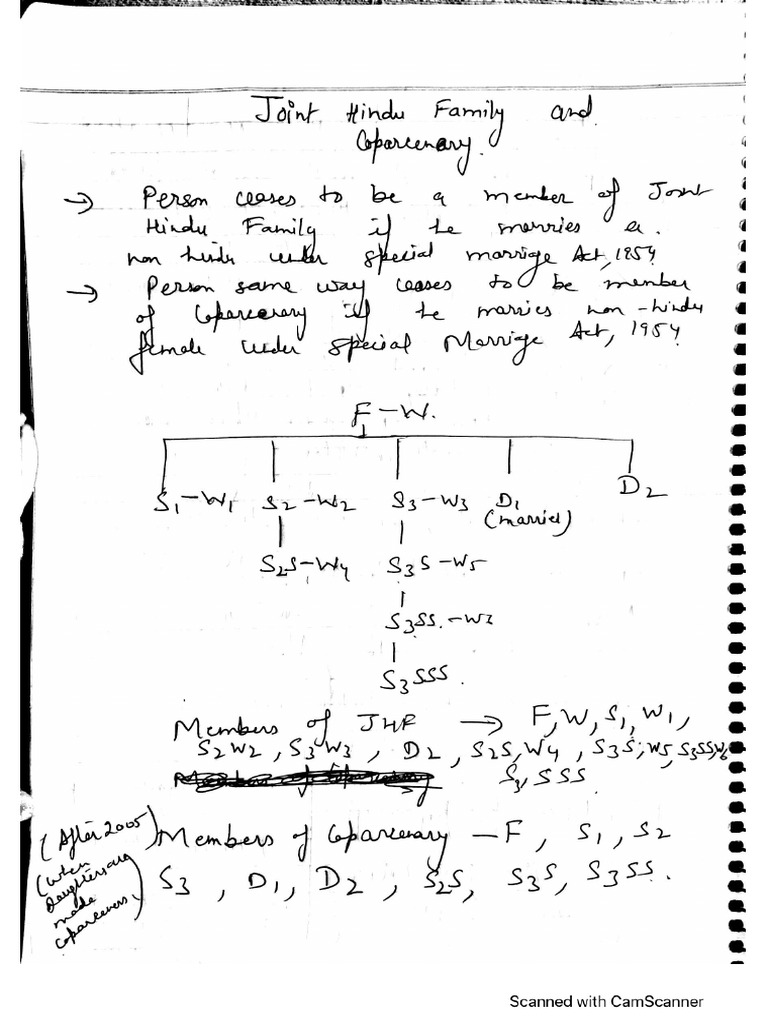 Joint Hindu Family and
Coparcenary.
→ Person ceases to be a member of Joint
Hindu Family if he marries a
non hindu under special marrige Act, 1954
→ Person same way ceases to be member
of Coparcenary if he marries non-hindu
female under special Marrige Act, 1954
F-W.
S1-W1 S2-W2 S3-W3 D1 D2
(married)
S2S-W4 S3S-W5
S3SS.-W
S3SSS.
Members of JHF → F, W, S1, W1,
S2 W2, S3 W3, D2, S2S, W4, S3S, W5, S3SS, W6
S3, SSS.
(After 2005) Members of Coparcenary - F, S1, S2
S3, D1, D2, S2S, S3S, S3SS.
(when
daughters are
made
coparceners)
Scanned with CamScanner